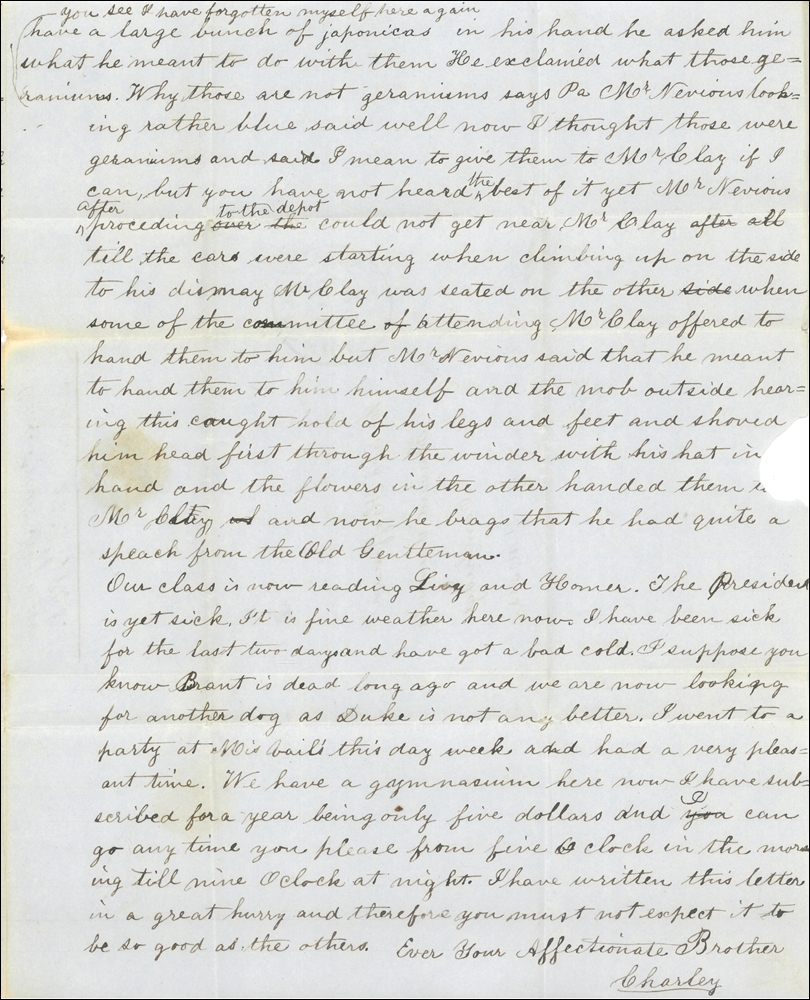 you see I have forgotten myself here again
have a large bunch of japonicas in his hand he asked him
what he meant to do with them He exclaimed what those ge=
raniums. Why those are not geraniums says Pa Mr Nevious look=
ing rather blue said well now I thought those were
geraniums and said I mean to give them to Mr Clay if I
can, but you have not heard the best of it yet Mr Nevious
after proceding over the to the depot could not get near Mr Clay after all
till the cars were starting when climbing up on the side
to his dismay Mr Clay was seated on the other side when
some of the committee of attending Mr Clay offered to
hand them to him but Mr Nevious said that he meant
to hand them to him himself and the mob outside hear=
ing this caught hold of his legs and feet and shoved
him head first through the winder with his hat in
hand and the flowers in the other handed them
Mr Clay and now he brags that he had quite a
speach from the Old Gentleman.
Our class is now reading Livy and Homer. The President
is yet sick. I't is fine weather here now. I have been sick
for the last two days and have got a bad cold. I suppose you
know Brant is dead long ago and we are now looking
for another dog as Duke is not any better. I went to a
party at Mis Vail's this day week and had a very pleas=
ant time. We have a gymnasium here now I have sub=
scribed for a year being only five dollars and you I can
go any time you please from five O clock in the morn
ing till nine Oclock at night. I have written this letter
in a great hurry and therefore you must not expect it to
be so good as the others. Ever Your Affectionate Brother
Charley